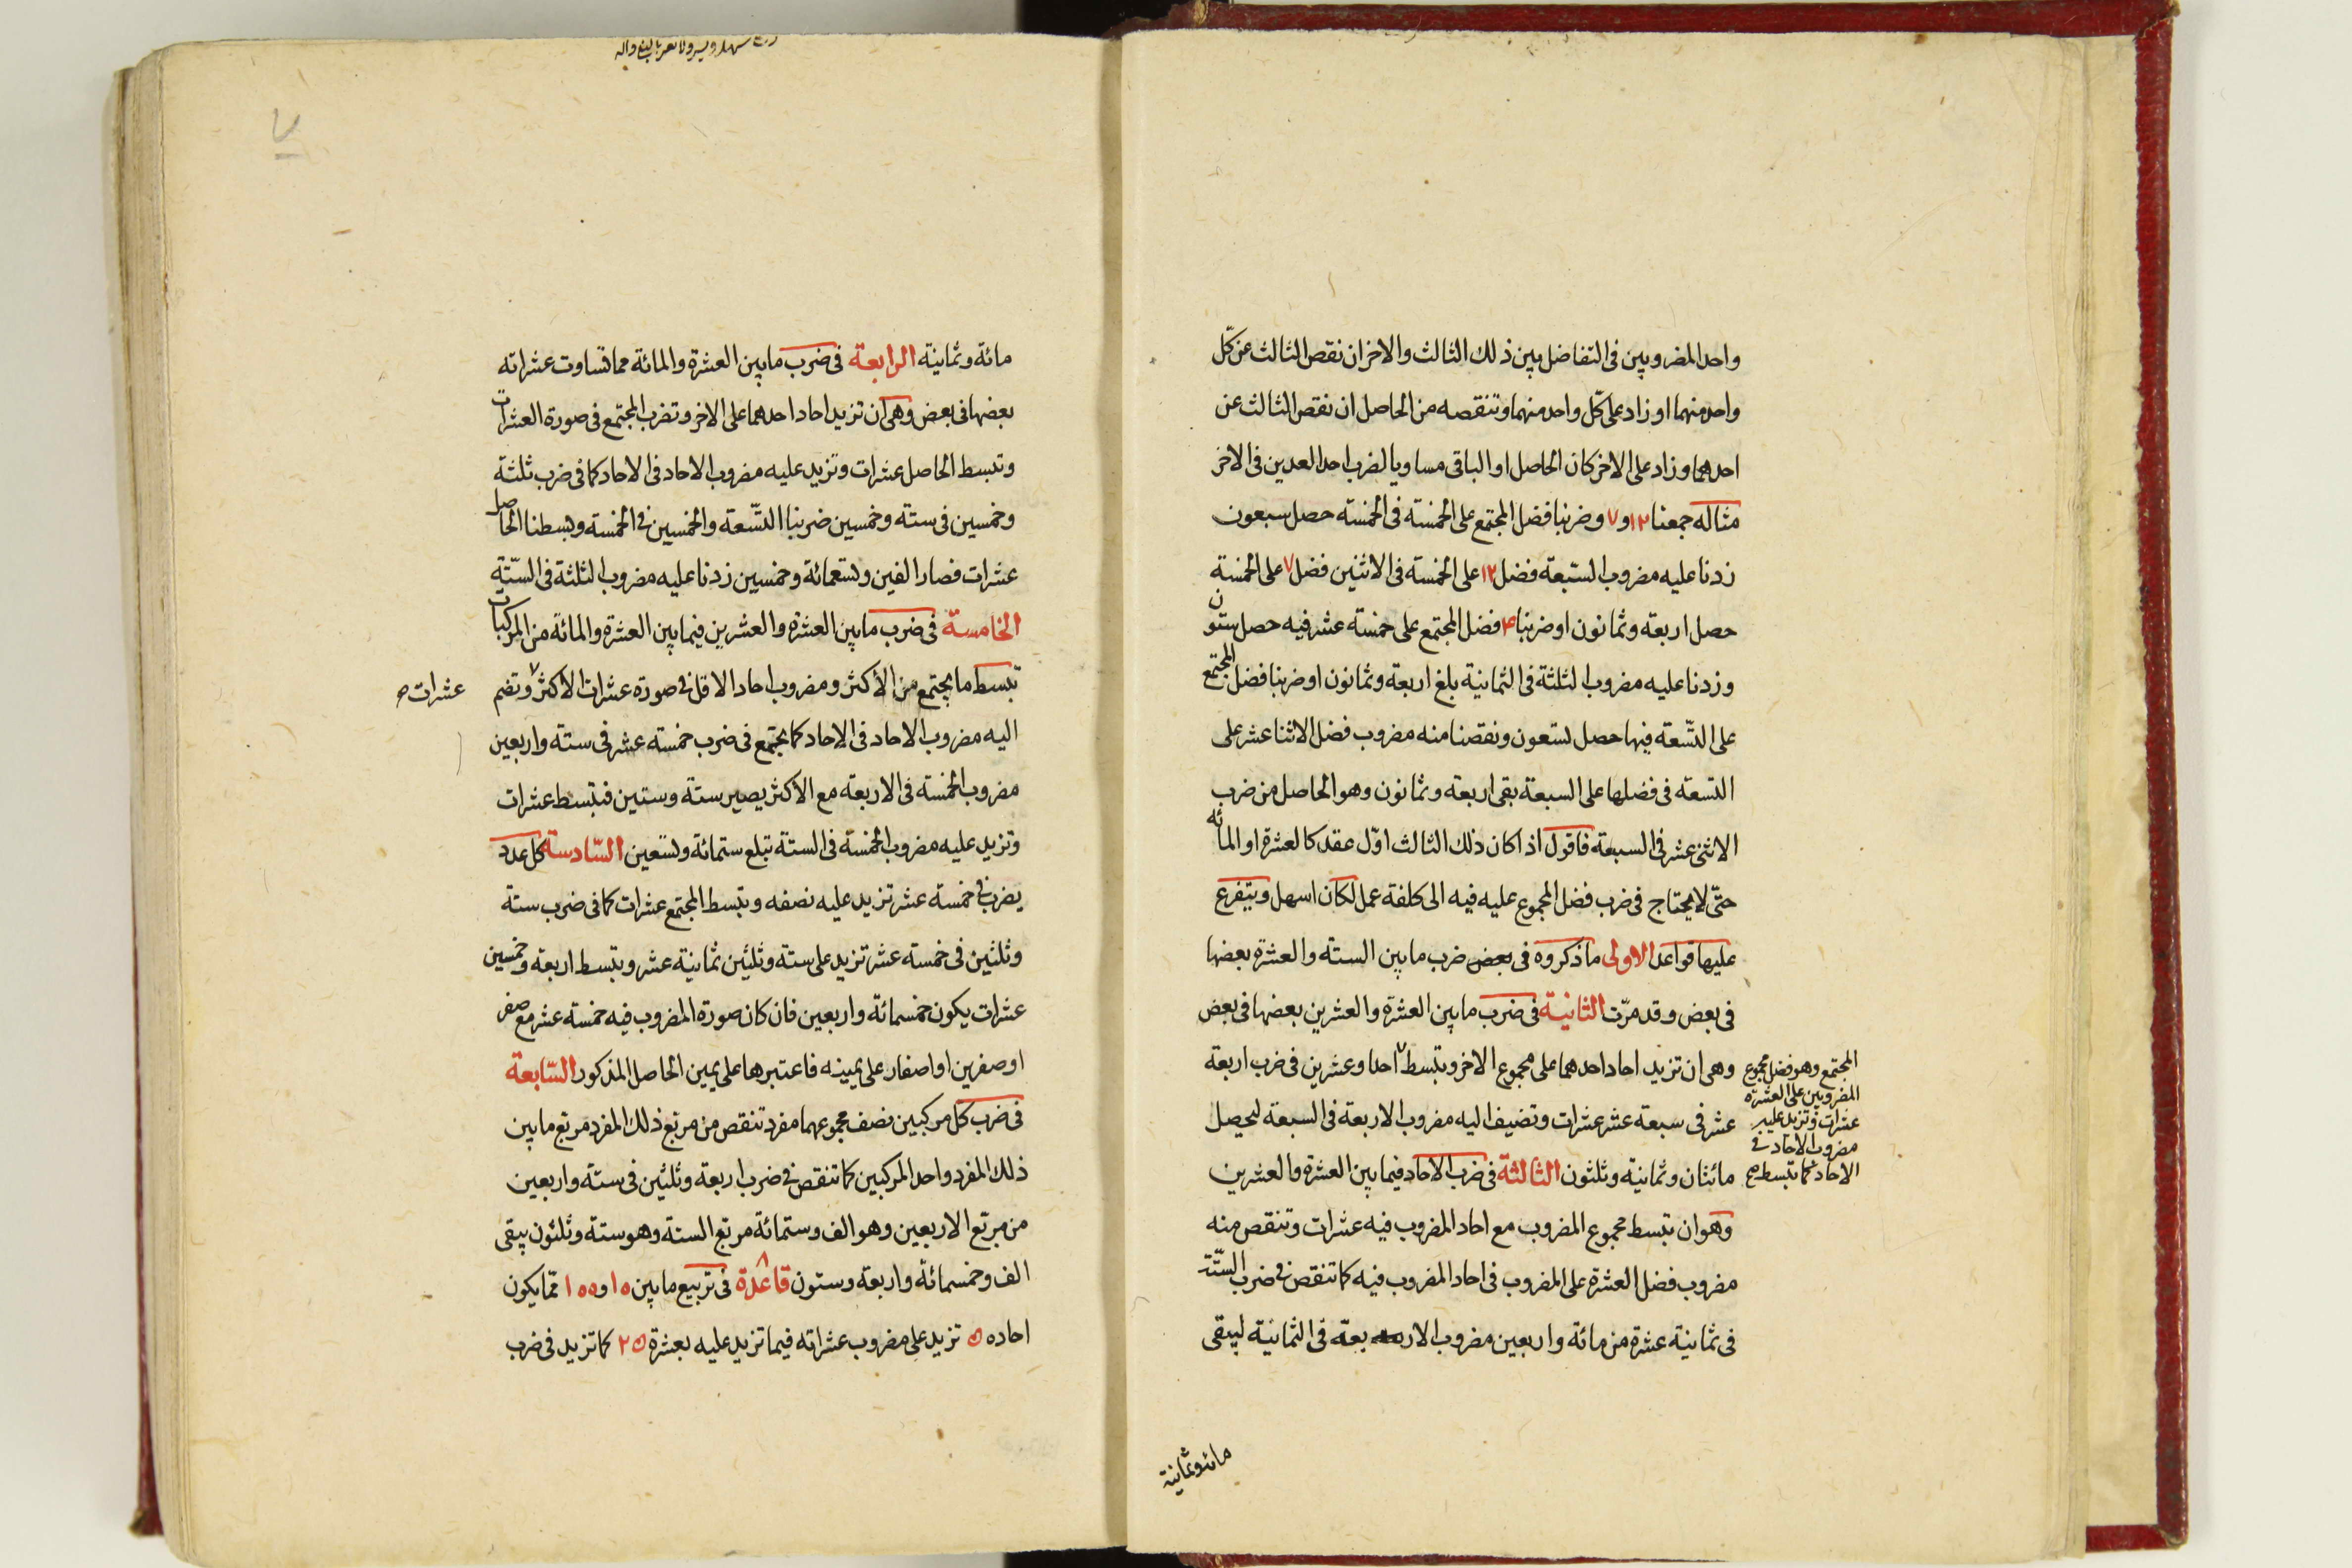 واحد المضروبين فى التفاضل بين ذلك الثالث والاخر ان نقص الثالث عن كلّ
واحد منهما او زاد على كلّ واحد منهما وتنقصه من الحاصل ان نقص الثالث عن
احدهما وزاد على الاخر كان الحاصل او الباقى مساويا لضرب احد العددين فى الاخر
مثاله جمعنا ١٢ و ٧ وضربنا فضل المجتمع على الخمسة فى الخمسة حصل سبعون
زدنا عليه مضروب السّبعة فضل ١٢ على الخمسة فى الاثنين فضل ٧ على الخمسة
حصل اربعة وثمانون او ضربنا ۴ فضل المجتمع على خمسة عشر فيه حصل ستون
وزدنا عليه مضروب الثلثة فى الثمانية بلغ اربعة وثمانون او ضربنا فضل المجتمع
على التّسعة فيها حصل تسعون ونقصنا منه مضروب فضل الاثنا عشر على
التسعة فى فضلها على السبعة بقى اربعة وثمانون وهو الحاصل من ضرب
الاثنى عشر فى السبعة فاقول اذا كان ذلك الثالث اوّل عقد كالعشرة او المائه
حتّى لا يحتاج فى ضرب فضل المجموع عليه فيه الى كلفة عمل لكان اسهل ويتفرع
عليها قواعد الاولى ما ذكروه فى بعض ضرب ما بين الستة والعشرة بعضها
فى بعض وقد مرّت الثانية فى ضرب ما بين العشرة والعشرين بعضها فى بعض
وهى ان تزيد احاد احدهما على مجموع الاخر وتبسط احدا وعشرين فى ضرب اربعة
المجتمع وهو فضل مجموع
المضروبين على العشرة
عشرات وتزيد عليه
مضروب الاحاد فى
الاحاد كما تبسط صح
عشر فى سبعة عشر عشرات وتضيف اليه مضروب الاربعة فى السبعة ليحصل
مائتان وثمانية وثلثون الثالثة فى ضرب الاحاد فيما بين العشرة والعشرين
وهو ان تبسط مجموع المضروب مع احاد المضروب فيه عشرات وتنقص منه
مضروب فضل العشرة على المضروب فى احاد المضروب فيه كما تنقص فى ضرب الستّة
فى ثمانية عشرة من مائة واربعين مضروب الاربعة فى الثمانية ليبقى
مائة وثمانية
٧
مائة وثمانية الرابعة فى ضرب ما بين العشرة والمائة مما تساوت عشراته
بعضها فى بعض وهى ان تزيد احاد احدهما على الاخر وتضرب المجتمع فى صورة العشرات
وتبسط الحاصل عشرات وتزيد عليه مضروب الاحاد فى الاحاد كما فى ضرب ثلثة
وخمسين فى ستة وخمسين ضربنا التّسعة والخمسين فى الخمسة وبسطنا الحاصل
عشرات فصار الفين وتسعمائة وخمسين زدنا عليه مضروب الثلثة فى السّتّة
الخامسة فى ضرب ما بين العشرة والعشرين فيما بين العشرة والمائة من المركبات
تبسط ما يجتمع من الأكثر ومضروب احاد الاقل فى صورة عشرات الاكثر وتضم
عشرات صح
اليه مضروب الاحاد فى الاحاد كما يجتمع فى ضرب خمسة عشر فى ستة واربعين
مضروب الخمسة فى الاربعة مع الاكثر يصير ستة وستين فتبسط عشرات
وتزيد عليه مضروب الخمسة فى الستة تبلغ ستمائة وتسعين السّادسة كل عدد
يضرب فى خمسة عشر تزيد عليه نصفه وتبسط المجتمع عشرات كما فى ضرب ستة
وثلثين فى خمسة عشر تزيد على ستة وثلثين ثمانية عشر وتبسط اربعة وخمسين
عشرات يكون خمسمائة واربعين فان كان صورة المضروب فيه خمسة عشر مع صفر
او صفرين او اصفار على يمينه فاعتبرها على يمين الحاصل المذكور السّابعة
فى ضرب كل مركبين نصف مجموعهما مفرد تنقص من مربع ذلك المفرد مربع ما بين
ذلك المفرد واحد المركبين كما تنقص فى ضرب اربعة وثلثين فى ستة واربعين
من مربع الاربعين وهو الف وستمائة مربع الستة وهو ستة وثلثون يبقى
الف وخمسمائة واربعة وستون قاعدة فى تربيع ما بين ١٥ و ١٥٥ ممّا يكون
احاده ۵ تزيد على مضروب عشراته فيما تزيد عليه بعشرة ٢۵ كما تزيد فى ضرب